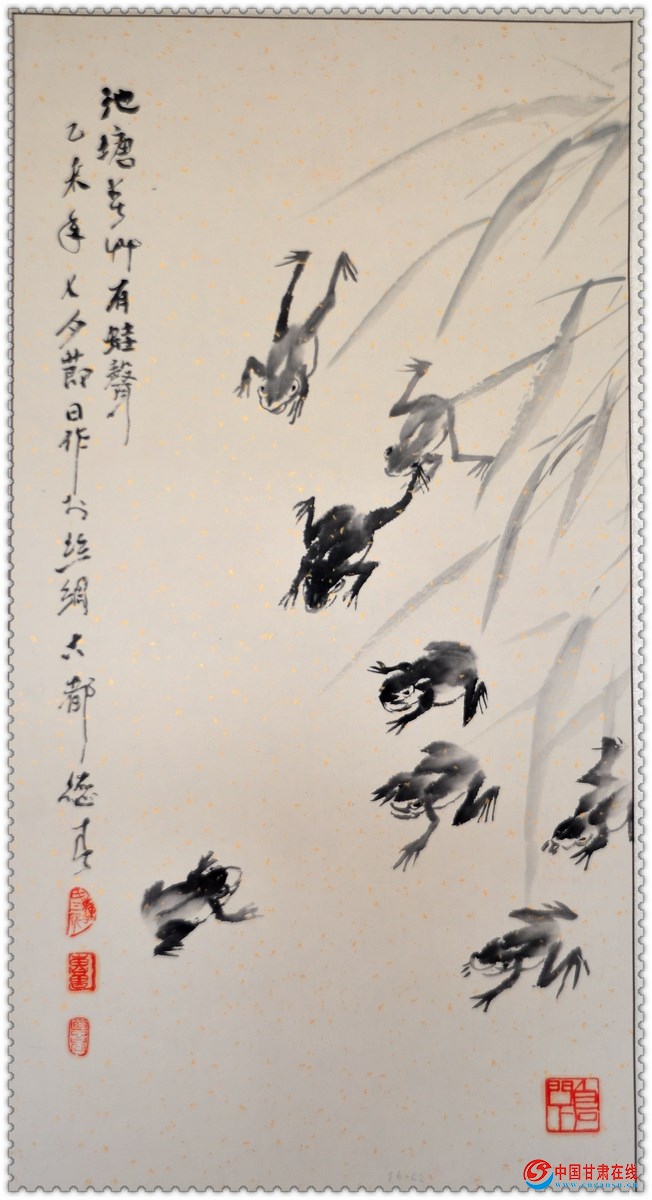 池塘春草有蛙聲
乙未年七夕節日作於絲綢古都德春
中国甘肃在线